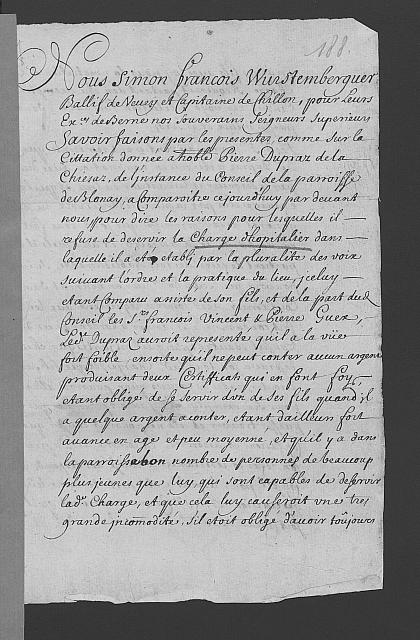 188.
Nous Simon François Wurstemberguer
Ballif de Vevey et Capitaine de Chillon, pour Leurs
Ex.ces de Berne nos Souverains Seigneurs Superieurs
Savoir faisons par les presentes, comme Sur la
Cittation donnée a Noble Pierre Dupraz de la
Chiesaz, de l'instance du Conseil de la parroisse
de Blonay, a Comparoitre ce jourd'huy par devant
nous pour dire les raisons pour lesquelles il
refuse de deservir la Charge d'hopitalier dans
laquelle il a eté etabli par la pluralité des voix
suivant l'ordre et la pratique du lieu, iceluy
etant Comparu assisté de Son fils, et de la part dud.
Conseil les S.rs françois Vincent & Pierre Guex,
Led.t Dupraz auroit representé qu'il a la vüe
fort foible, ensorte qu'il ne peut conter aucun argent
produisant deux Certificats qui en font foy,
etant obligé de se Servir d'un de Ses fils quand il
a quelque argent a conter, etant d'ailleurs fort
avancé en age et peu moyenné, et qu'il y a dans
la parroisse bon nombre de personnes de beaucoup
plus jeunes que luy, qui sont capables de deservir
lad.e Charge, et que cela luy causeroit une tres
grande incomodité, s'il etoit obligé d'avoir toûjours